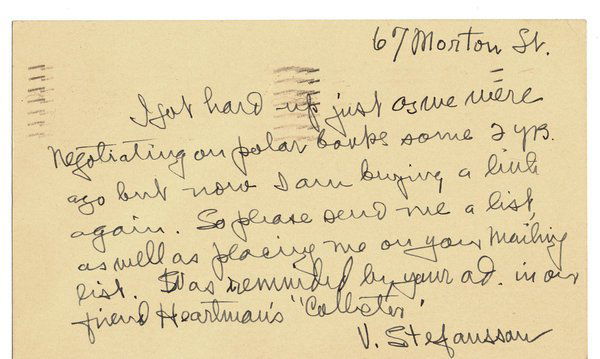 67 Morton St.
I got hard up just as we were
negotiating on polar books some 2 yrs.
ago but now I am buying a little
again. So please send me a list,
as well as placing me on your mailing
list. Was reminded by your ad. in our
friend Heartman's "Collector."
V. Stefansson